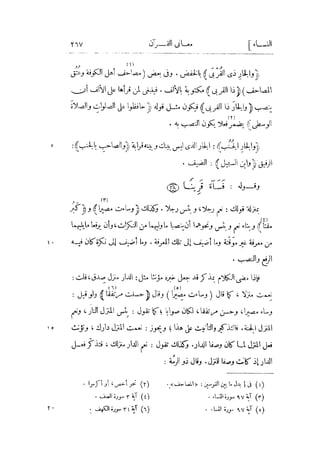 النساء ] معانى القرآن ٢٦٧
﴿ والجار ذى القربى ﴾ بالخفض . وفى بعض (مصاحف أهل الكوفة وعُتُق
المصاحف) (١) ﴿ ذا القربى ﴾ مكتوبة بالألف . فينبغى لمن قرأها على الألف أن
ينصب ﴿ والجارَ ذا القربى ﴾ فيكون مثل قوله ﴿ حافظوا على الصلوات والصلاةَ
الوسطى ﴾ يضمر (٢) فعلا يكون النصب به .
﴿ والجار الجُنُب ﴾ : الجار الذى ليس بينك وبينه قرابة ﴿ والصاحب بالجنب ﴾ : ٥
الرفيق ﴿ وابن السبيل ﴾ : الضيف .
وقوله : فَسَآءَ قَرِينًا
بمنزلة قولك : نعم رجلا ، وبئس رجلا . وكذلك ﴿ وساءت مصيرا ﴾ (٣) و ﴿ كَبُر
مقتا ﴾ (٤) وبناء نعم وبئس ونحوهما أن ينصبا ما وليهما من النكرات ، وأن يرفعا ما يليهما
من معرفة غير موقّتة وما أضيف إلى تلك المعرفة . وما أضيف إلى نكرة كان فيه ١٠
الرفع والنصب .
فإذا مضى الكلام بمذكر قد جعل خبره مؤنثا مثل : الدار منزل صدق ، قلت :
نعمت منزلا ، كما قال ﴿ وساءت مصيرا ﴾ (٥) وقال ﴿ حسنت مرتفقا ﴾ (٦) ولو قيل :
وساء مصيرا ، وحسن مرتفقا ، لكان صوابا ؛ كما تقول : بئس المنزل النار ، ونعم
المنزل الجنة . فالتذكير والتأنيث على هذا ؛ ويجوز : نعمت المنزل دارك ، وتؤنث ١٥
فعل المنزل لما كان وصفا للدار . وكذلك تقول : نعم الدار منزلك ، فتذكر فعل
الدار إذ كانت وصفا للمنزل . وقال ذو الرمّة :
(١) فى ا بدل ما بين القوسين : «المصاحف» . (٢) نحو أخص ، أو أكرموا .
(٣) آية ٩٧ سورة النساء . (٤) آية ٣ سورة الصف .
(٥) آية ٩٧ سورة النساء . (٦) آية ٣١ سورة الكهف . ٢٠